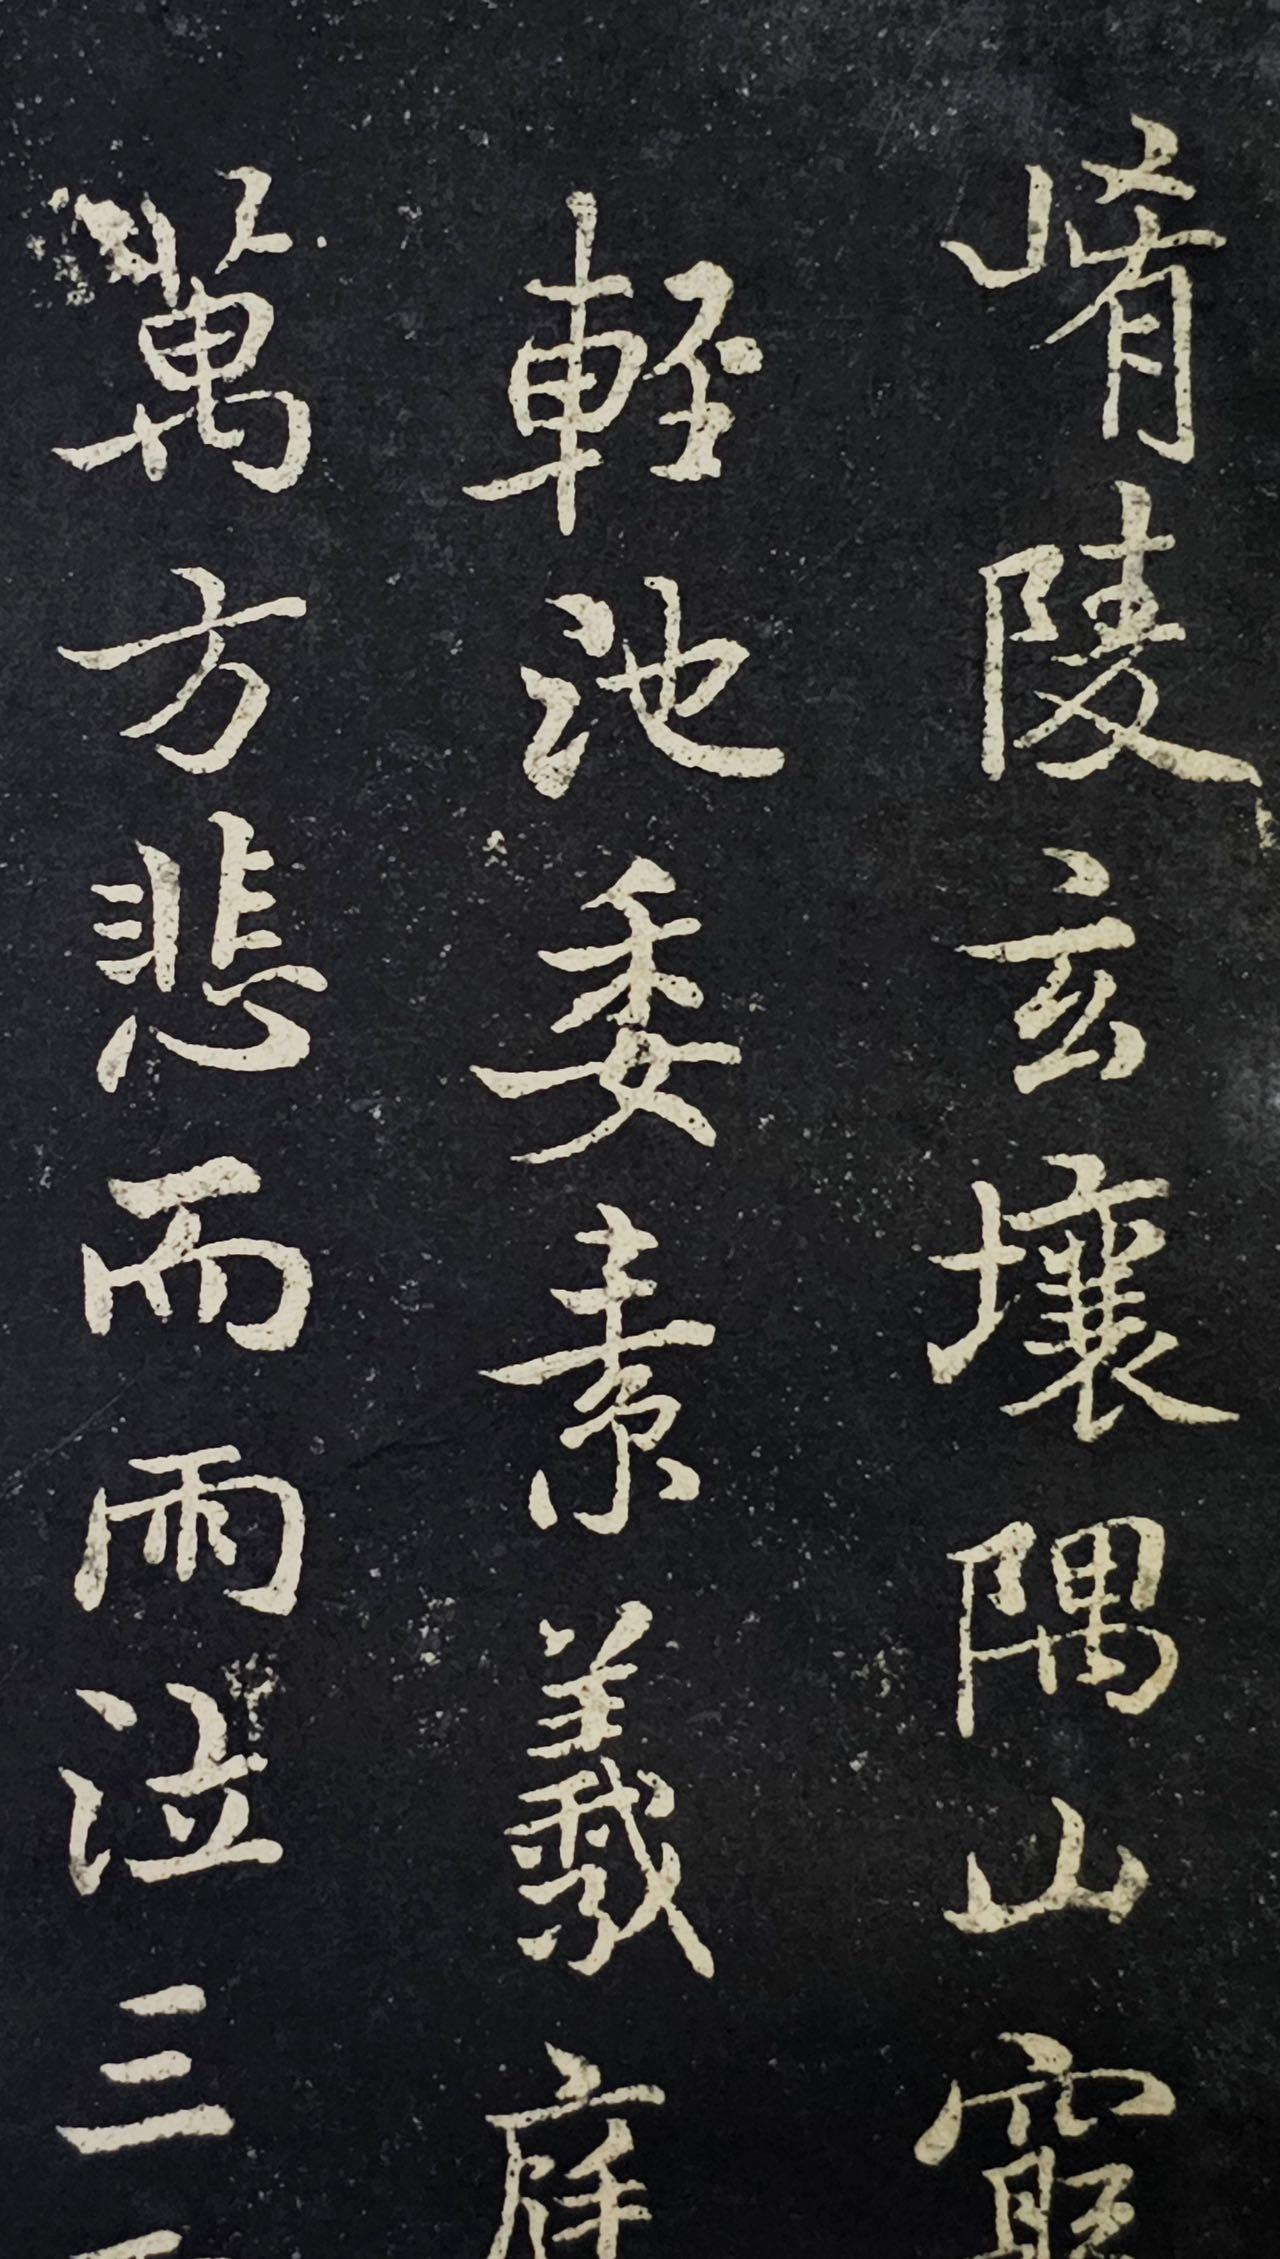 崤陵玄壤隅山
輊池委素羲庭
萬方悲而雨泣三